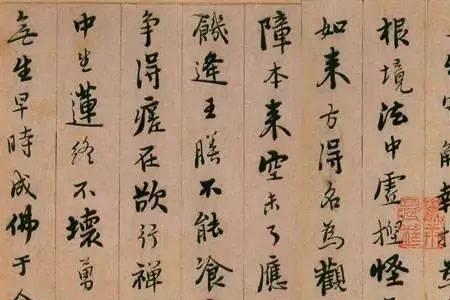 解執指
根境法中虛揑怪
如来方得名為觀
障本来空未了應
饑逢王膳不能飡
争得瘥在欲行禪
中生蓮終不壞勇
無生早時成佛于